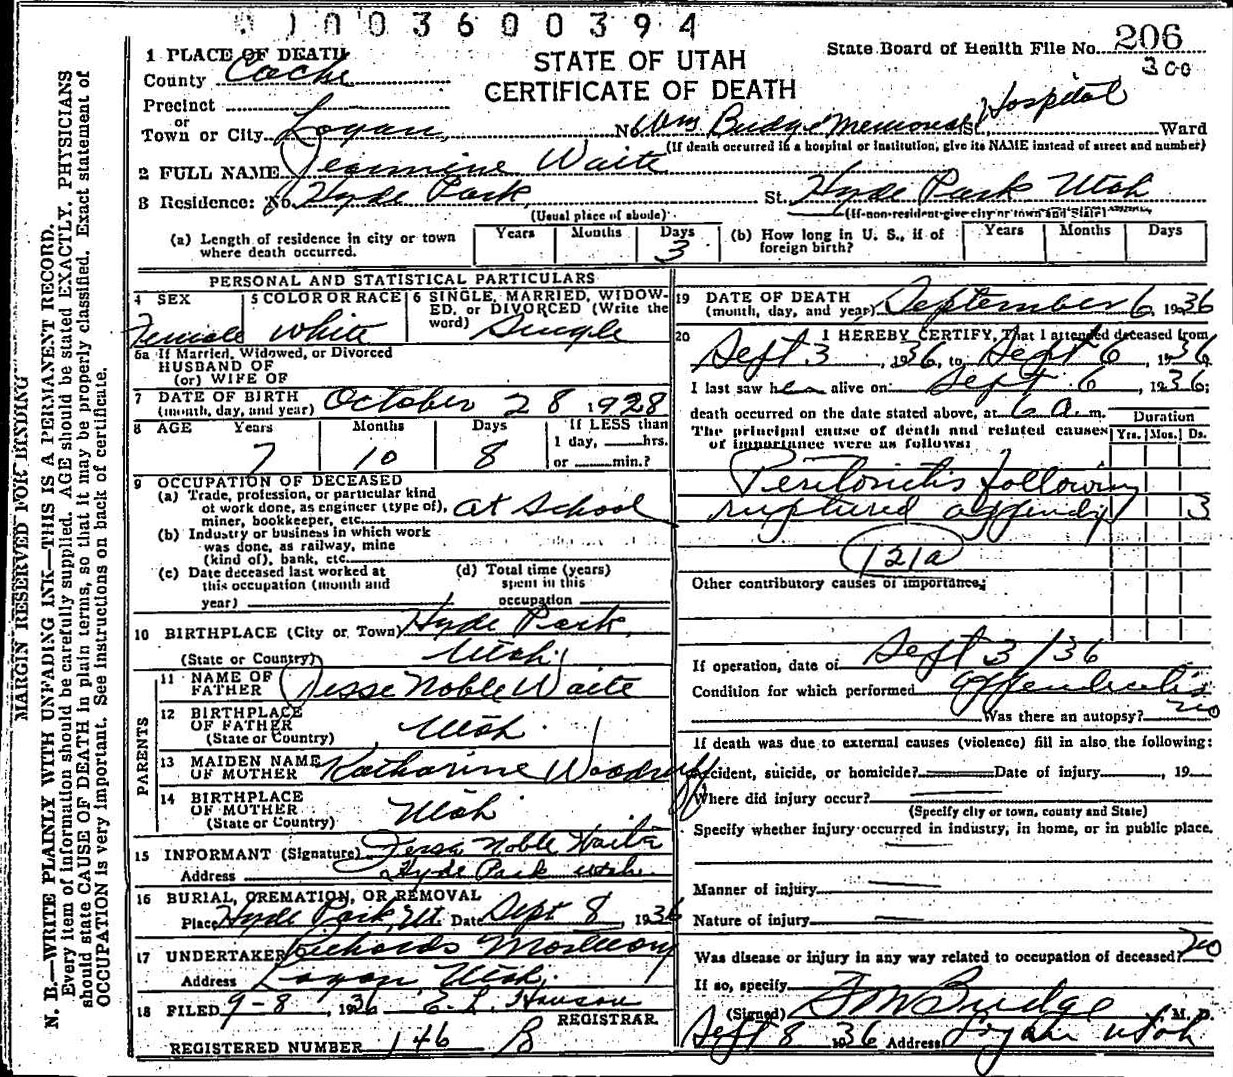 0 1 0 0 3 6 0 0 3 9 4
STATE OF UTAH
CERTIFICATE OF DEATH
State Board of Health File No. 206
300
1 PLACE OF DEATH
County Cache
Precinct
or
Town or City Logan, No. Wm Budge Memorial St. Hospital Ward
(If death occurred in a hospital or institution, give its NAME instead of street and number)
2 FULL NAME Waite
3 Residence: No. Hyde Park, St. Hyde Park Utah
(Usual place of abode) (If non-resident give city or town and State)
(a) Length of residence in city or town where death occurred. Years Months Days 3 (b) How long in U. S., if of foreign birth? Years Months Days
PERSONAL AND STATISTICAL PARTICULARS
4 SEX Female
5 COLOR OR RACE white
6 SINGLE, MARRIED, WIDOW-
ED, or DIVORCED (Write the
word) Single
6a If Married, Widowed, or Divorced
HUSBAND OF
(or) WIFE OF
7 DATE OF BIRTH
(month, day, and year) October 28 1928
8 AGE Years Months Days If LESS than
7 10 8 1 day, hrs.
or min.?
9 OCCUPATION OF DECEASED
(a) Trade, profession, or particular kind
of work done, as engineer (type of),
miner, bookkeeper, etc. at School
(b) Industry or business in which work
was done, as railway, mine
(kind of), bank, etc.
(c) Date deceased last worked at
this occupation (month and
year)
(d) Total time (years)
spent in this
occupation
10 BIRTHPLACE (City or Town) Hyde Park,
(State or Country) Utah
PARENTS
11 NAME OF
FATHER Jesse Noble Waite
12 BIRTHPLACE
OF FATHER
(State or Country) Utah
13 MAIDEN NAME
OF MOTHER Katharine Woodruff
14 BIRTHPLACE
OF MOTHER
(State or Country) Utah
15 INFORMANT (Signature) Jesse Noble Waite
Address Hyde Park Utah
16 BURIAL, CREMATION, OR REMOVAL
Place Hyde Park, Ut. Date Sept 8, 1936
17 UNDERTAKER Richards Mortuary
Address Logan, Utah,
18 FILED 9-8, 1936 E. L. Hanson
REGISTRAR
REGISTERED NUMBER 146 B
19 DATE OF DEATH
(month, day, and year) September 6, 1936
20 I HEREBY CERTIFY, That I attended deceased from
Sept 3, 1936, to Sept 6, 1936
I last saw her alive on Sept 6, 1936;
death occurred on the date stated above, at 6 a. m.
The principal cause of death and related causes
of importance were as follows:
Duration
Yrs. Mos. Ds.
Peritonitis following
ruptured appendix 3
121a
Other contributory causes of importance:
If operation, date of Sept 3/36
Condition for which performed appendicitis
Was there an autopsy? no
If death was due to external causes (violence) fill in also the following:
Accident, suicide, or homicide? Date of injury , 19
Where did injury occur?
(Specify city or town, county and State)
Specify whether injury occurred in industry, in home, or in public place.
Manner of injury
Nature of injury
Was disease or injury in any way related to occupation of deceased? no
If so, specify
(Signed) Budge M. D.
Sept 8 1936 Address Logan Utah
MARGIN RESERVED FOR BINDING
N. B.—WRITE PLAINLY WITH UNFADING INK—THIS IS A PERMANENT RECORD.
Every item of information should be carefully supplied. AGE should be stated EXACTLY. PHYSICIANS
should state CAUSE OF DEATH in plain terms, so that it may be properly classified. Exact statement of
OCCUPATION is very important. See instructions on back of certificate.